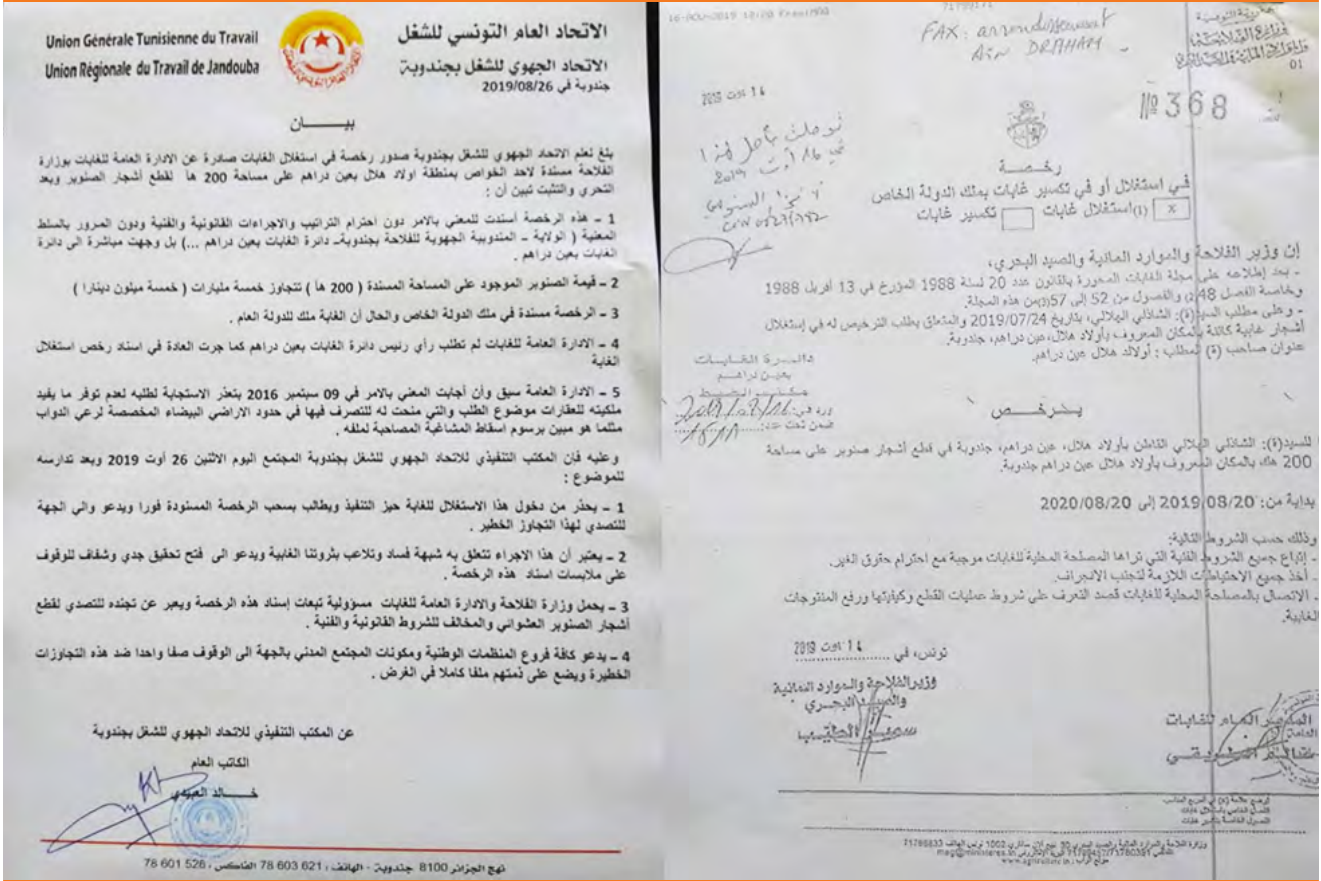 Union Générale Tunisienne du Travail
Union Régionale du Travail de Jandouba
الاتحاد العام التونسي للشغل
الاتحاد الجهوي للشغل بجندوبة
جندوبة في 2019/08/26
بيـــــان
بلغ لعلم الاتحاد الجهوي للشغل بجندوبة صدور رخصة في استغلال الغابات صادرة عن الادارة العامة للغابات بوزارة
الفلاحة مسندة لاحد الخواص بمنطقة اولاد هلال بعين دراهم على مساحة 200 ها لقطع أشجار الصنوبر وبعد
التحري والتثبت تبين أن :
1 – هذه الرخصة أسندت للمعني بالامر دون احترام التراتيب والاجراءات القانونية والفنية ودون المرور بالسلط
المعنية ( الولاية – المندوبية الجهوية للفلاحة بجندوبة– دائرة الغابات بعين دراهم ...) بل وجهت مباشرة الى دائرة
الغابات بعين دراهم .
2 – قيمة الصنوبر الموجود على المساحة المسندة ( 200 ها ) تتجاوز خمسة مليارات ( خمسة ميلون دينارا )
3 – الرخصة مسندة في ملك الدولة الخاص والحال أن الغابة ملك للدولة العام .
4 – الادارة العامة للغابات لم تطلب رأي رئيس دائرة الغابات بعين دراهم كما جرت العادة في اسناد رخص استغلال
الغابة
5 – الادارة العامة سبق وأن أجابت المعني بالامر في 09 سبتمبر 2016 بتعذر الاستجابة لطلبه لعدم توفر ما يفيد
ملكيته للعقارات موضوع الطلب والتي منحت له للتصرف فيها في حدود الاراضي البيضاء المخصصة لرعي الدواب
مثلما هو مبين برسوم اسقاط المشاغبة المصاحبة لملفه .
وعليه فإن المكتب التنفيذي للاتحاد الجهوي للشغل بجندوبة المجتمع اليوم الاثنين 26 أوت 2019 وبعد تدارسه
للموضوع :
1 – يحذر من دخول هذا الاستغلال للغابة حيز التنفيذ ويطالب بسحب الرخصة المسنودة فورا ويدعو والي الجهة
للتصدي لهذا التجاوز الخطير .
2 – يعتبر أن هذا الاجراء تتعلق به شبهة فساد وتلاعب بثروتنا الغابية ويدعو الى فتح تحقيق جدي وشفاف للوقوف
على ملابسات اسناد هذه الرخصة .
3 – يحمل وزارة الفلاحة والادارة العامة للغابات مسؤولية تبعات إسناد هذه الرخصة ويعبر عن تجنده للتصدي لقطع
أشجار الصنوبر العشوائي والمخالف للشروط القانونية والفنية .
4 – يدعو كافة فروع المنظمات الوطنية ومكونات المجتمع المدني بالجهة الى الوقوف صفا واحدا ضد هذه التجاوزات
الخطيرة ويضع على ذمتهم ملفا كاملا في الغرض .
عن المكتب التنفيذي للاتحاد الجهوي للشغل بجندوبة
الكاتب العام
خـــالد العبيدي
نهج الجزائر 8100 جندوبة - الهاتف : 621 603 78 الفاكس : 526 601 78
FAX: arrondissement
Ain DRAHAM
01
№ 368
14 اوت 2019
رخصـــة
في استغلال أو في تكسير غابات بملك الدولة الخاص
x (1)استغلال غابات تكسير غابات
إن وزير الفلاحة والموارد المائية والصيد البحري،
- بعد إطلاعه على مجلة الغابات المحورة بالقانون عدد 20 لسنة 1988 المؤرخ في 13 أفريل 1988
وخاصة الفصل 48(2) والفصول من 52 إلى 57(3)من هذه المجلة.
- وعلى مطلب السيد(ة): الشاذلي الهلالي، بتاريخ 2019/07/24 والمتعلق بطلب الترخيص له في إستغلال
أشجار غابية كائنة بالمكان المعروف بأولاد هلال، عين دراهم، جندوبة.
عنوان صاحب (ة) المطلب : أولاد هلال عين دراهم.
دائـــرة الغـابـــات
بعيـن دراهـــم
مكتـــب الضبـــط
ورد في:
ضمن تحت عدد:
يـــرخـــص
للسيد(ة): الشاذلي الهلالي القاطن بأولاد هلال، عين دراهم، جندوبة في قطع أشجار صنوبر على مساحة
200 هك بالمكان المعروف بأولاد هلال عين دراهم جندوبة.
بداية من: 2019/08/20 إلى 2020/08/20
وذلك حسب الشروط التالية:
- إتباع جميع الشروط الفنية التي تراها المصلحة المحلية للغابات موجبة مع احترام حقوق الغير.
- أخذ جميع الاحتياطات اللازمة لتجنب الانجراف.
- الاتصال بالمصلحة المحلية للغابات قصد التعرف على شروط عمليات القطع وكيفيتها ورفع المنتوجات
الغابية.
تونس، في 14 اوت 2019
وزير الفلاحة والموارد المائية
والصيد البحـــري
سميـــر الطيـــب
المديـــر العـــام للغابات